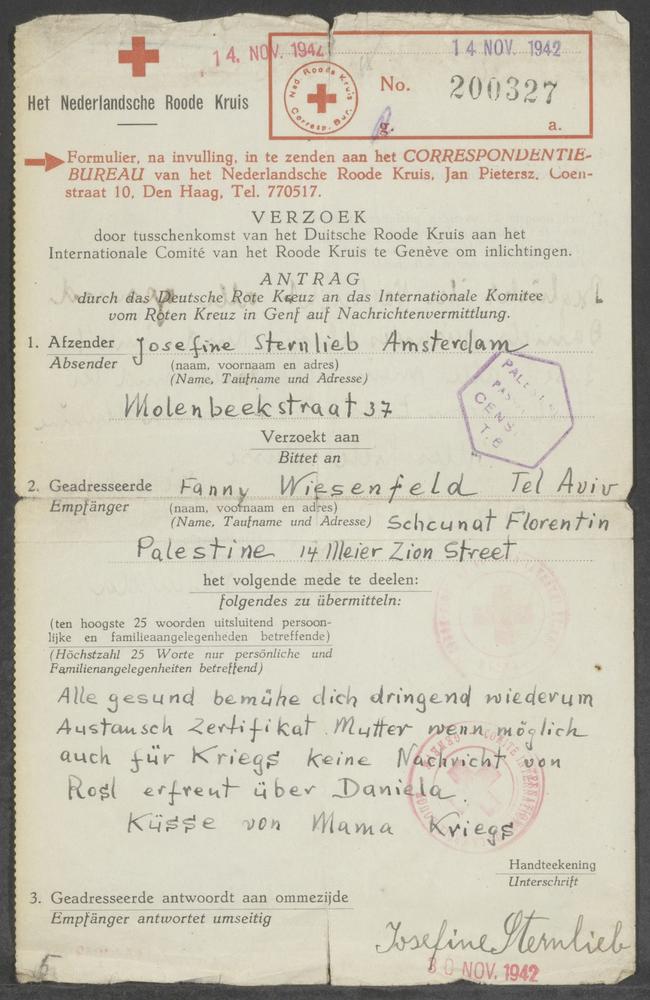 14. NOV. 1942
14 NOV. 1942
Ned. Roode Kruis
Corresp. Bur.
No. 200327
g. a.
Het Nederlandsche Roode Kruis
Formulier, na invulling, in te zenden aan het CORRESPONDENTIE-
BUREAU van het Nederlandsche Roode Kruis, Jan Pietersz. Coen-
straat 10, Den Haag, Tel. 770517.
VERZOEK
door tusschenkomst van het Duitsche Roode Kruis aan het
Internationale Comité van het Roode Kruis te Genève om inlichtingen.
ANTRAG
durch das Deutsche Rote Kreuz an das Internationale Komitee
vom Roten Kreuz in Genf auf Nachrichtenvermittlung.
1. Afzender Josefine Sternlieb Amsterdam
Absender (naam, voornaam en adres)
(Name, Taufname und Adresse)
Molenbeekstraat 37
PALESTINE
CENS
T.6
Verzoekt aan
Bittet an
2. Geadresseerde Fanny Wiesenfeld Tel Aviv
Empfänger (naam, voornaam en adres)
(Name, Taufname und Adresse) Schcunat Florentin
Palestine 14 Meier Zion Street
het volgende mede te deelen:
folgendes zu übermitteln:
(ten hoogste 25 woorden uitsluitend persoon-
lijke en familieaangelegenheden betreffende)
(Höchstzahl 25 Worte nur persönliche und
Familienangelegenheiten betreffend)
Alle gesund bemühe dich dringend wiederum
Austausch Zertifikat Mutter wenn möglich
auch für Kriegs keine Nachricht von
Rosl erfreut über Daniela.
Küsse von Mama Kriegs
Handteekening
Unterschrift
3. Geadresseerde antwoordt aan ommezijde
Empfänger antwortet umseitig
Josefine Sternlieb
30 NOV. 1942